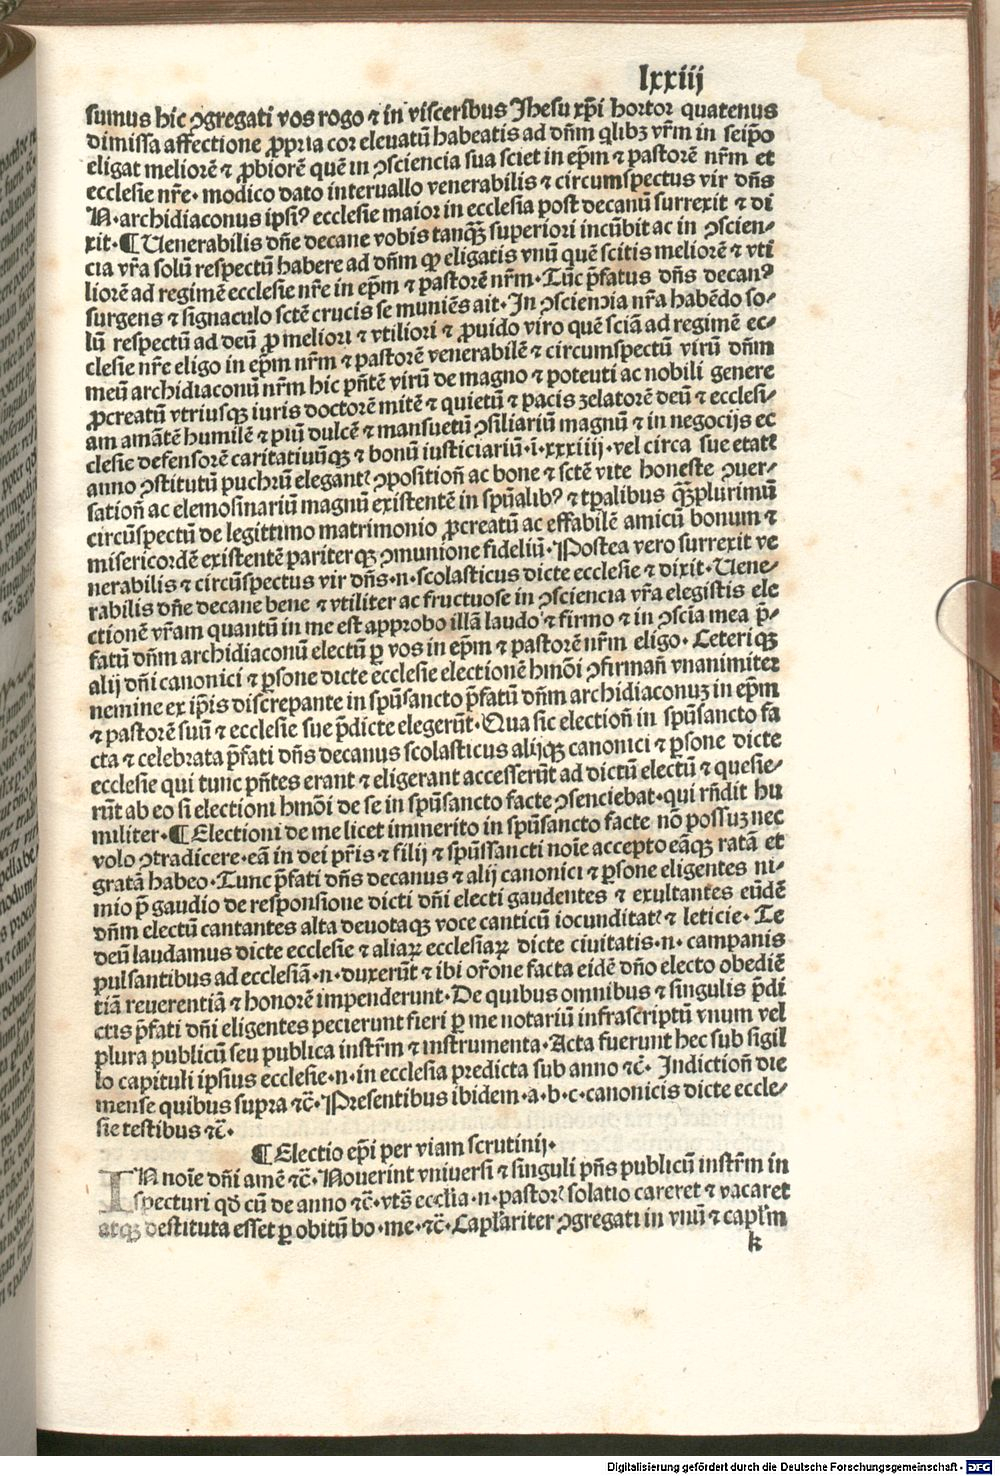 lxxiij
sumus hic ꝯgregati vos rogo ⁊ in visceribus Jhesu xp̄i hortor quatenus
dimissa affectione ꝓpria cor eleuatū habeatis ad dn̄m qlibꝫ vr̄m in seip̄o
eligat meliorē ⁊ ꝓbiorē quē in ꝯsciencia sua sciet in ep̄m ⁊ pastorē nr̄m et
ecclesie nr̄e· modico dato interuallo venerabilis ⁊ circumspectus vir dn̄s
N·archidiaconus ipsiꝰ ecclesie maior in ecclesia post decanū surrexit ⁊ di
xit·¶ Uenerabilis dn̄e decane vobis tanqꝫ̄ superiori incūbit ac in ꝯscien⸗
cia vr̄a solū respectū habere ad dn̄m ꝙ eligatis vnū quē scitis meliorē ⁊ vti
liorē ad regimē ecclesie nr̄e in ep̄m ⁊ pastorē nr̄m·Tūc p̄fatus dn̄s decanꝰ
surgens ⁊ signaculo sctē crucis se muniēs ait·In ꝯsciencia nr̄a habēdo so⸗
lū respectū ad deū ꝓ meliori ⁊ vtiliori ⁊ ꝓuido viro quē sciā ad regimē ec⸗
clesie nr̄e eligo in ep̄m nr̄m ⁊ pastorē venerabilē ⁊ circumspectū virū dn̄m
meū archidiaconū nr̄m hic pn̄tē virū de magno ⁊ poteuti ac nobili genere
ꝓcreatū vtriusqꝫ iuris doctorē mitē ⁊ quietū ⁊ pacis zelatorē deū ⁊ ecclesi⸗
am amātē humilē ⁊ piū dulcē ⁊ mansuetū ꝯsiliariū magnū ⁊ in negocijs ec
clesie defensorē caritatiuūqꝫ ⁊ bonū iusticiariū·i·xxxiiij·vel circa sue etatꝭ
anno ꝯstitutū puchrū elegantꝭ ꝯpositioñ ac bone ⁊ sctē vite honeste ꝯuer⸗
satioñ ac elemosinariū magnū existentē in spūalibꝰ ⁊ tꝑalibus qꝫ̄plurimū
circūspectū de legittimo matrimonio ꝓcreatū ac effabilē amicū bonum ⁊
misericordē existentē pariter qꝫ ꝯmunione fideliū·Postea vero surrexit ve
nerabilis ⁊ circūspectus vir dn̄s·n·scolasticus dicte ecclesie ⁊ dixit·Uene⸗
rabilis dn̄e decane bene ⁊ vtiliter ac fructuose in ꝯsciencia vr̄a elegistis ele
ctionē vr̄am quantū in me est approbo illā laudo ⁊ firmo ⁊ in ꝯscīa mea p̄⸗
fatū dn̄m archidiaconū electū ꝑ vos in ep̄m ⁊ pastorē nr̄m eligo· Ceteriqꝫ
alij dn̄i canonici ⁊ ꝑsone dicte ecclesie electionē hmōi ꝯfirmañ vnanimiter
nemine ex ip̄is discrepante in spūsancto p̄fatū dn̄m archidiaconuꝫ in ep̄m
⁊ pastorē suū ⁊ ecclesie sue p̄dicte elegerūt·Qua sic electioñ in spūsancto fa
cta ⁊ celebrata p̄fati dn̄s decanus scolasticus alijqꝫ canonici ⁊ ꝑsone dicte
ecclesie qui tunc pn̄tes erant ⁊ eligerant accesserūt ad dictū electū ⁊ quesie⸗
rūt ab eo si electioni hmōi de se in spūsancto facte ꝯsenciebat·qui rn̄dit hu
militer·¶ Electioni de me licet immerito in spūsancto facte nō possuꝫ nec
volo ꝯtradicere·eā in dei pr̄is ⁊ filij ⁊ spūssancti noīe accepto eāqꝫ ratā et
gratā habeo·Tunc p̄fati dn̄s decanus ⁊ alij canonici ⁊ ꝑsone eligentes ni⸗
mio p̄ gaudio de responsione dicti dn̄i electi gaudentes ⁊ exultantes eūdē
dn̄m electū cantantes alta deuotaqꝫ voce canticū iocunditatꝭ ⁊ leticie·Te
deū laudamus dicte ecclesie ⁊ aliaꝝ ecclesiaꝝ dicte ciuitatis·n·campanis
pulsantibus ad ecclesiā·n·duxerūt ⁊ ibi or̄one facta eidē dn̄o electo obediē
tiā reuerentiā ⁊ honorē impenderunt·De quibus omnibus ⁊ singulis p̄di
ctis p̄fati dn̄i eligentes pecierunt fieri ꝑ me notariū infrascriptū vnum vel
plura publicū seu publica instr̄m ⁊ instrumenta·Acta fuerunt hec sub sigil
lo capituli ipsius ecclesie·n·in ecclesia predicta sub anno ⁊c̄· Indictioñ die
mense quibus supra ⁊c̄·Presentibus ibidem·a·b·c·canonicis dicte eccle⸗
sie testibus ⁊c̄·
¶ Electio ep̄i per viam scrutinij·
IN noīe dn̄i amē ⁊c̄·Nouerint vniuersi ⁊ singuli pn̄s publicū instr̄m in
specturi qd̄ cū de anno ⁊c̄·vts̄ ecclīa·n·pastorꝭ solatio careret ⁊ vacaret
atqꝫ destituta esset ꝑ obitū bo·me·⁊c̄·Capl̄ariter ꝯgregati in vnū ⁊ capl̄m
k
Digitalisierung gefördert durch die Deutsche Forschungsgemeinschaft - DFG